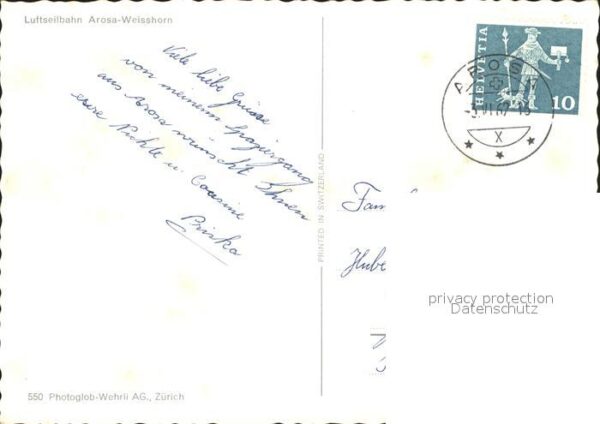 Luftseilbahn Arosa-Weisshorn
Viele liebe Grüsse
von meinem Spaziergang
aus Arosa wünscht Ihnen
eure Nichte u. Cousine
Priska
HELVETIA
10
AROSA
X
PRINTED IN SWITZERLAND
Fam
Hube
privacy protection
Datenschutz
550 Photoglob-Wehrli AG., Zürich